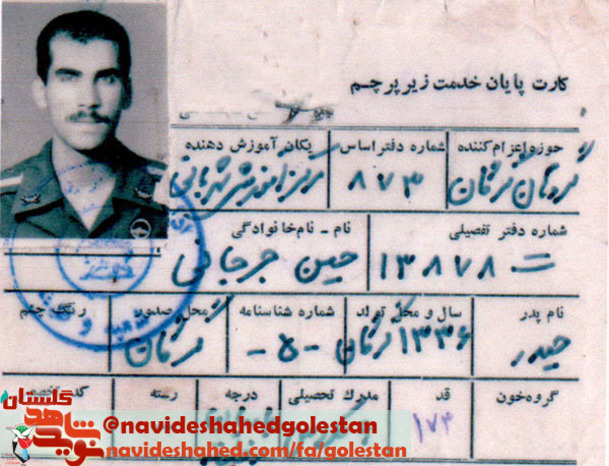 کارت پایان خدمت زیر پرچم
حوزه اعزام کننده شماره دفتر اساس یکان آموزش دهنده
گردان گرگان ۸۷۳ مرکز آموزش شهربانی
شماره دفتر تفصیلی نام - نام خانوادگی
۱۳۸۷۸ حسین جرجانی
نام پدر سال و محل تولد شماره شناسنامه محل صدور رنگ چشم
حیدر ۱۳۳۶ گرگان -۵- گرگان
گروه خون قد مدرک تحصیلی درجه رسته
۱۷۳
گلستان
نوید شاهد
@navideshahedgolestan
navideshahed.com/fa/golestan